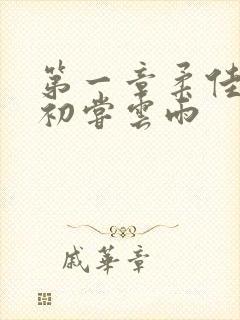 第一章柔佳
初尝雲雨
戚華章